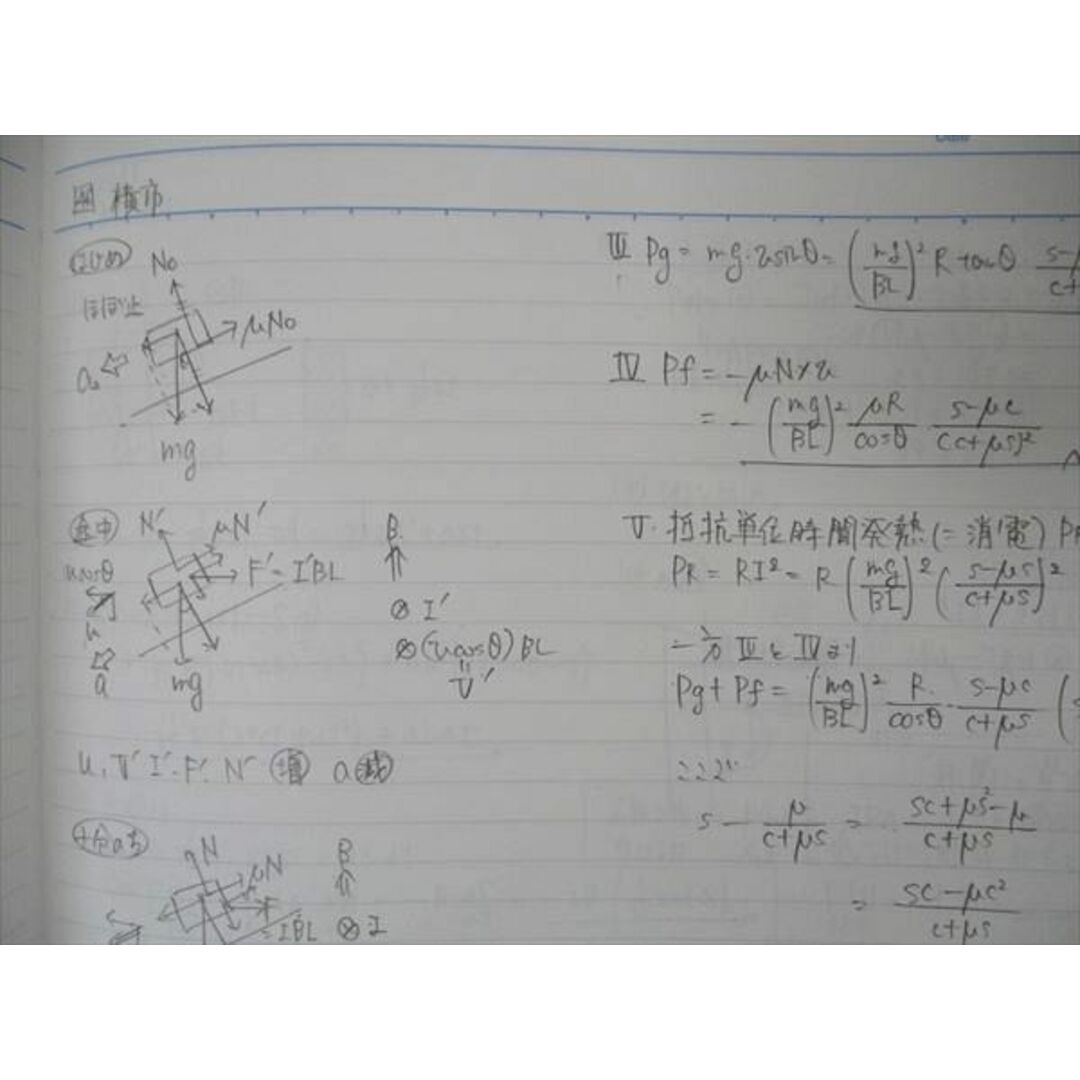 図 横市
はじめ
ほぼ静止
N₀
μN₀
a₀
mg
途中
N′
μN′
ucosθ
F′=I′BL
u
a
mg
B
⊗ I′
⊗(ucosθ)BL
=
V′
u, V′ I′ F′ N′ 増 a 減
十分のち
N
μN
F
=IBL
B
⊗ I
Ⅲ Pg = mg·usinθ = (mg/BL)² R tanθ
Ⅳ Pf = -μN×u
= -(mg/BL)² μR/cosθ · s-μc/(c+μs)²
Ⅴ. 抵抗単位時間発熱(=消電) PR
PR = RI² = R (mg/BL)² (s-μs/c+μs)²
一方 ⅢとⅣより
Pg + Pf = (mg/BL)² R/cosθ · s-μc/c+μs (
ここで
s - μ/c+μs = sc+μs²-μ/c+μs
= sc-μc²/c+μs